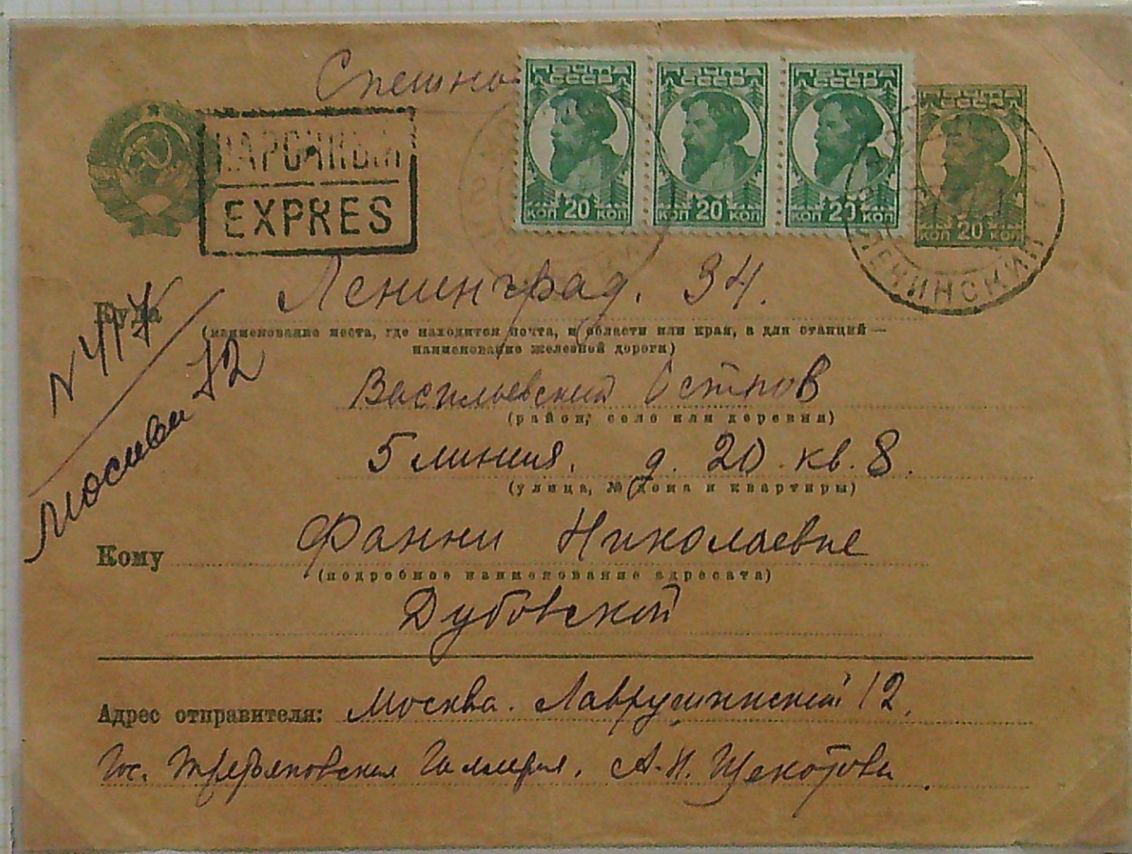 Спешно
ПОЧТА СССР ПОЧТА СССР ПОЧТА СССР ПОЧТА СССР
НАРОЧНЫЙ
EXPRES
КОП 20 КОП КОП 20 КОП КОП 20 КОП КОП 20 КОП
Куда Ленинград. 34.
(наименование места, где находится почта, и области или края, а для станций —
наименование железной дороги)
N 417
Москва 72
Васильевский Остров
(район, село или деревня)
5 линия, д. 20. кв. 8.
(улица, № дома и квартиры)
Кому Фанни Николаевне
(подробное наименование адресата)
Дубовской
Адрес отправителя: Москва. Лаврушинский 12.
Гос. Третьяковская Галлерея, А. Н. Щекотова